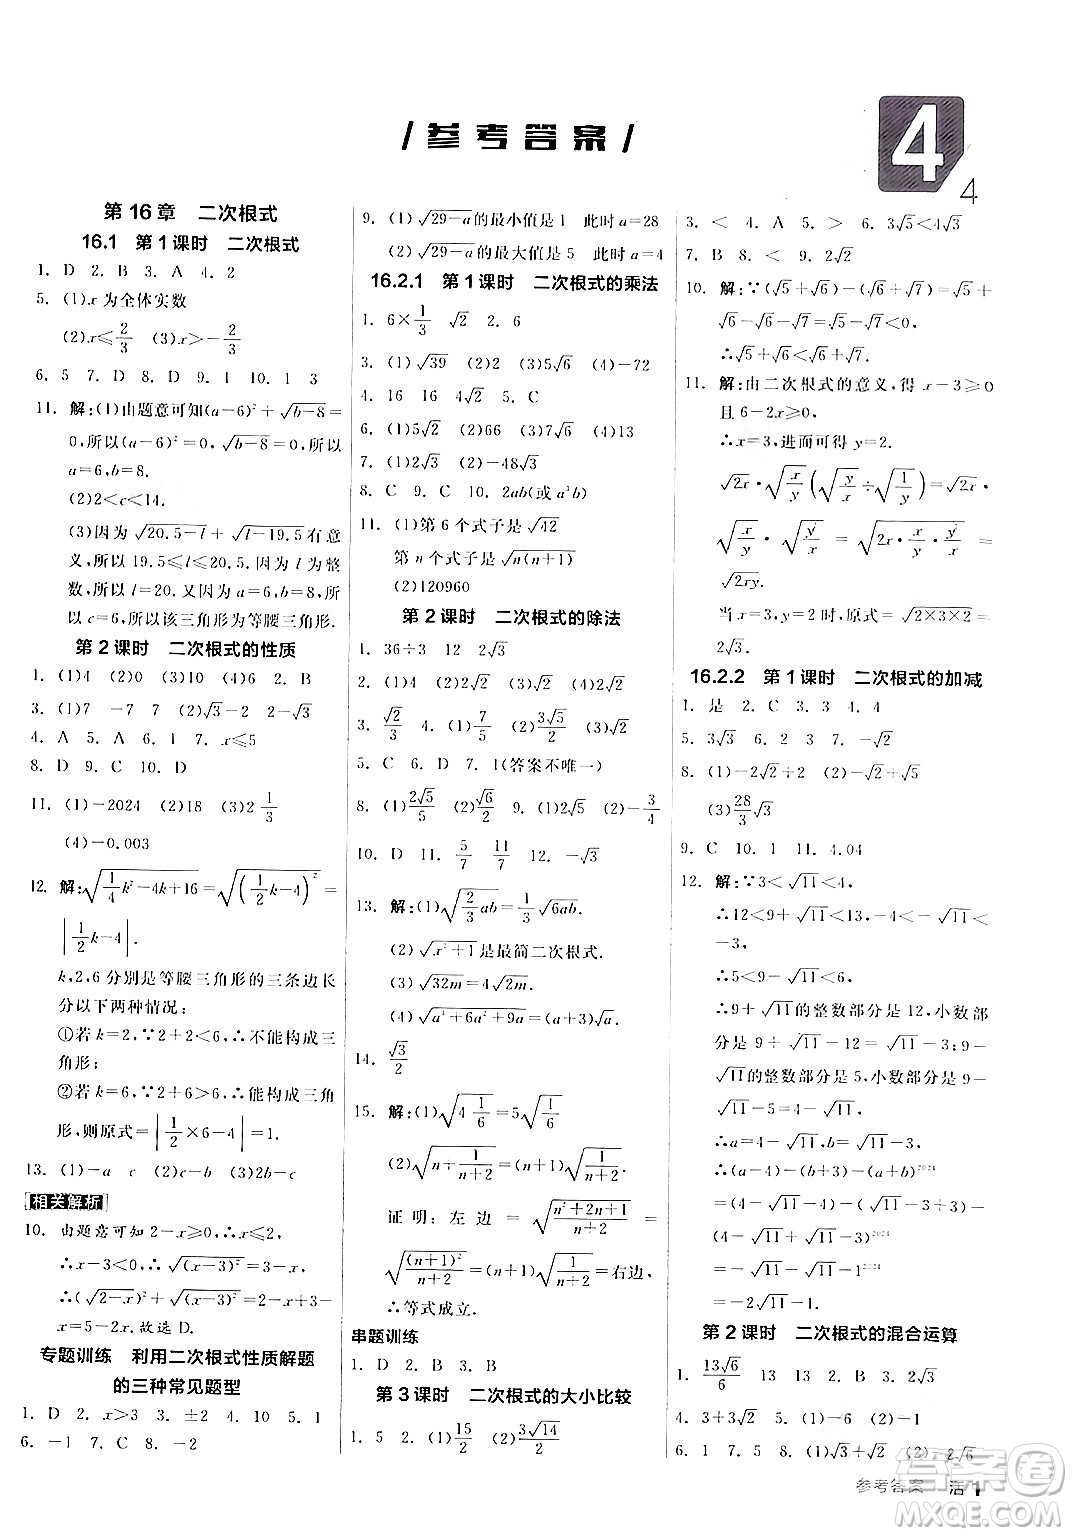 参考答案
4
4
第16章 二次根式
16.1 第1课时 二次根式
1. D 2. B 3. A 4. 2
5. (1)x为全体实数
(2)x≤2/3 (3)x>-2/3
6. 5 7. D 8. D 9. D 10. 1 3
11. 解:(1)由题意可知(a-6)²+√(b-8)=
0,所以(a-6)²=0,√(b-8)=0,所以
a=6,b=8.
(2)2<c<14.
(3)因为√(20.5-l)+√(l-19.5)有意
义,所以19.5≤l≤20.5.因为l为整
数,所以l=20.又因为c=2b-a=10,
所以c=10,所以
以c=6,所以该三角形为等腰三角形.
第2课时 二次根式的性质
1. (1)4 (2)0 (3)10 (4)6 2. B
3. (1)7 -7 7 (2)√3-2 (3)√3
4. A 5. A 6. 1 7. x≤5
8. D 9. C 10. D
11. (1)-2024 (2)18 (3)2 1/3
(4)-0.003
12. 解:√(1/4k²-4k+16)=√((1/2k-4)²)=
|1/2k-4|.
k,2,6分别是等腰三角形的三条边长
分以下两种情况:
①若k=2,∵2+2<6,∴不能构成三
角形;
②若k=6,∵2+6>6,∴能构成三角
形,则原式=|1/2×6-4|=1.
13. (1)-a c (2)c-b (3)2b-c
[相关解析]
10. 由题意可知2-x≥0,∴x≤2,
∴x-3<0,∴√((x-3)²)=3-x,
∴(√(2-x))²+√((x-3)²)=2-x+3-
x=5-2x.故选D.
专题训练 利用二次根式性质解题
的三种常见题型
1. D 2. x>3 3. ±2 4. D 5. 1
6. -1 7. C 8. -2
9. (1)√(29-a)的最小值是1 此时a=28
(2)√(29-a)的最大值是5 此时a=4
16.2.1 第1课时 二次根式的乘法
1. 6×1/3 √2 2. 6
3. (1)√39 (2)2 (3)5√6 (4)-2
4. 16 16 4√2 5. C
6. (1)5√2 (2)66 (3)7√6 (4)13
7. (1)2√3 (2)-48√3
8. C 9. C 10. 2ab(或a³b)
11. (1)第6个式子是√42
第n个式子是√(n(n+1))
(2)120960
第2课时 二次根式的除法
1. 36÷3 12 2√3
2. (1)4 (2)√3 (3)√2 (4)2√2
3. √2/3 4. (1)7/5 (2)3√5/5 (3)√2
5. C 6. D 7. 1(答案不唯一)
8. (1)2√5/5 (2)√6/2 9. (1)2√5 (2)-3/4
10. D 11. 5/7 11/7 12. -√3
13. 解:(1)√(2/3ab)=1/3√(6ab).
(2)√(x²+1)是最简二次根式.
(3)√(32m)=4√(2m).
(4)√(a³+6a²+9a)=(a+3)√a.
14. √3/2
15. 解:(1)√(4 1/6)=5√(1/6)
(2)√(n+1/(n+2))=(n+1)√(1/(n+2))
证明:左边=√((n²+2n+1)/(n+2))=
√((n+1)²/(n+2))=(n+1)√(1/(n+2))=右边,
∴等式成立.
串题训练
1. D 2. B 3. D 4. D
第3课时 二次根式的大小比较
1. 5 2. (1)√15/2 (2)3√14/2
3. < 4. A 5. > 6. 3√5<4√3
7. B 8. < 9. 2√5
10. 解:∵(√5+√6)-(√6+√7)=√5+
√6-√6-√7=√5-√7<0,
∴√5+√6<√6+√7.
11. 解:由二次根式的意义,得x-3≥0
且6-2x≥0,
∴x=3,进而可得y=2.
√(2x)·√(x/y)(√(x/y)÷√(1/y))=√(2x)·
√(x/y)÷√(x/y)=√(2x·x/y·y/x)=
√(2xy).
当x=3,y=2时,原式=√(2×3×2)
=2√3.
16.2.2 第1课时 二次根式的加减
1. 是 2. C 3. 3 4. 4
5. 3√3 6. 2 7. -√2
8. (1)-2√2+2 (2)√2
(3)28/3√3
9. C 10. 1 11. 4.04
12. 解:∵3<√11<4,
∴12<9+√11<13,-4<-√11<
-3,
∴5<9-√11<6.
∴9+√11的整数部分是12,小数部
分是9+√11-12=√11-3;9-
√11的整数部分是5,小数部分是9-
√11-5=4-√11.
∴a=4-√11,b=√11-3,
∴(a-b)-(a+b)²⁰²⁴
=(4-√11-√11+3)-
(4-√11+√11-3)²⁰²⁴
=7-2√11-1
=6-2√11.
第2课时 二次根式的混合运算
1. 13√6/6 13 13 2. B 3. 2√3
4. 3+3√2 5. (1)-6 (2)-1
6. 1 7. 5 8. (1)√3+√2 (2)-2√6
参考答案 沿1
答案卷
MXQE.COM